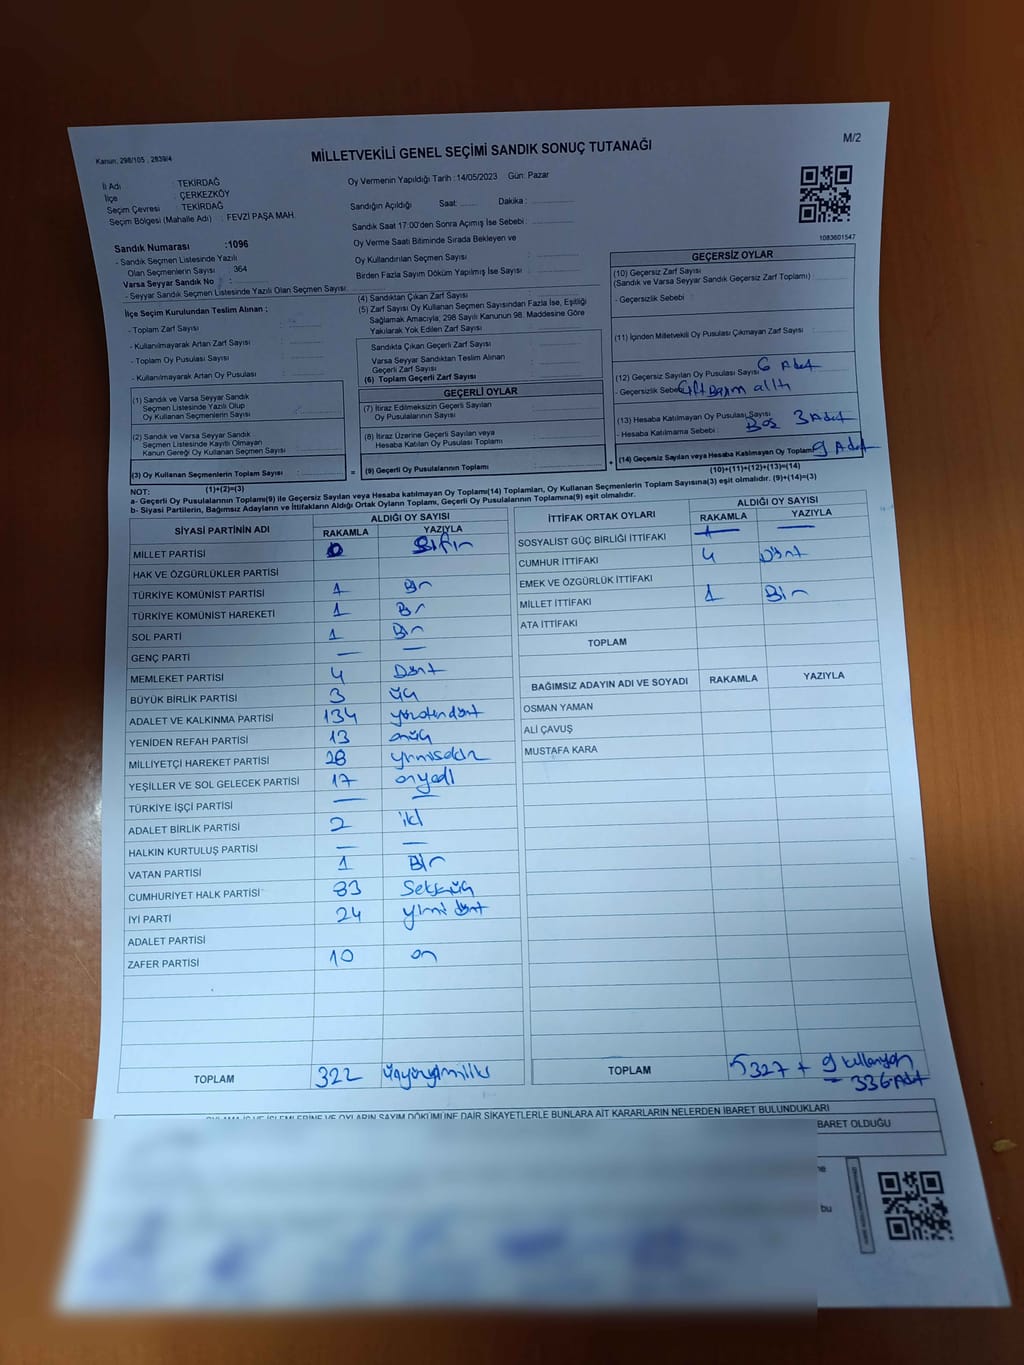 Kanun: 298/105 , 2839/4
MİLLETVEKİLİ GENEL SEÇİMİ SANDIK SONUÇ TUTANAĞI
M/2
İl Adı : TEKİRDAĞ
İlçe : ÇERKEZKÖY
Seçim Çevresi : TEKİRDAĞ
Seçim Bölgesi (Mahalle Adı) : FEVZİ PAŞA MAH.
Sandık Numarası :1096
- Sandık Seçmen Listesinde Yazılı
Olan Seçmenlerin Sayısı : 364
Varsa Seyyar Sandık No :
- Seyyar Sandık Seçmen Listesinde Yazılı Olan Seçmen Sayısı:
Oy Vermenin Yapıldığı Tarih :14/05/2023 Gün: Pazar
Sandığın Açıldığı Saat: Dakika :
Sandık Saat 17:00'den Sonra Açımış İse Sebebi :
Oy Verme Saati Bitiminde Sırada Bekleyen ve
Oy Kullandırılan Seçmen Sayısı :
Birden Fazla Sayım Döküm Yapılmış İse Sayısı :
1083601547
İlçe Seçim Kurulundan Teslim Alınan :
- Toplam Zarf Sayısı :
- Kullanılmayarak Artan Zarf Sayısı :
- Toplam Oy Pusulası Sayısı :
- Kullanılmayarak Artan Oy Pusulası :
(1) Sandık ve Varsa Seyyar Sandık
Seçmen Listesinde Yazılı Olup
Oy Kullanan Seçmenlerin Sayısı :
(2) Sandık ve Varsa Seyyar Sandık
Seçmen Listesinde Kayıtlı Olmayan
Kanun Gereği Oy Kullanan Seçmen Sayısı :
(3) Oy Kullanan Seçmenlerin Toplam Sayısı : =
(1)+(2)=(3)
(4) Sandıktan Çıkan Zarf Sayısı :
(5) Zarf Sayısı Oy Kullanan Seçmen Sayısından Fazla İse, Eşitliği
Sağlamak Amacıyla, 298 Sayılı Kanunun 98. Maddesine Göre
Yakılarak Yok Edilen Zarf Sayısı :
Sandıkta Çıkan Geçerli Zarf Sayısı :
Varsa Seyyar Sandıktan Teslim Alınan
Geçerli Zarf Sayısı :
(6) Toplam Geçerli Zarf Sayısı :
GEÇERLİ OYLAR
(7) İtiraz Edilmeksizin Geçerli Sayılan
Oy Pusulalarının Sayısı :
(8) İtiraz Üzerine Geçerli Sayılan veya
Hesaba Katılan Oy Pusulası Toplamı :
(9) Geçerli Oy Pusulalarının Toplamı : +
GEÇERSİZ OYLAR
(10) Geçersiz Zarf Sayısı
(Sandık ve Varsa Seyyar Sandık Geçersiz Zarf Toplamı) :
- Geçersizlik Sebebi :
(11) İçinden Milletvekili Oy Pusulası Çıkmayan Zarf Sayısı :
(12) Geçersiz Sayılan Oy Pusulası Sayısı : 6 Adet
- Geçersizlik Sebebi
(13) Hesaba Katılmayan Oy Pusulası Sayısı : 3 Adet
- Hesaba Katılmama Sebebi : Boş
(14) Geçersiz Sayılan veya Hesaba Katılmayan Oy Toplamı 9 Adet
(10)+(11)+(12)+(13)=(14)
NOT:
a- Geçerli Oy Pusulalarının Toplamı(9) ile Geçersiz Sayılan veya Hesaba katılmayan Oy Toplamı(14) Toplamları, Oy Kullanan Seçmenlerin Toplam Sayısına(3) eşit olmalıdır. (9)+(14)=(3)
b- Siyasi Partilerin, Bağımsız Adayların ve İttifakların Aldığı Ortak Oyların Toplamı, Geçerli Oy Pusulalarının Toplamına(9) eşit olmalıdır.
SİYASİ PARTİNİN ADI ALDIĞI OY SAYISI
RAKAMLA YAZIYLA
MİLLET PARTİSİ 0 Sıfır
HAK VE ÖZGÜRLÜKLER PARTİSİ
TÜRKİYE KOMÜNİST PARTİSİ 1 Bir
TÜRKİYE KOMÜNİST HAREKETİ 1 Bir
SOL PARTİ 1 Bir
GENÇ PARTİ — —
MEMLEKET PARTİSİ 4 Dört
BÜYÜK BİRLİK PARTİSİ 3 üç
ADALET VE KALKINMA PARTİSİ 134 yüzotuzdört
YENİDEN REFAH PARTİSİ 13 onüç
MİLLİYETÇİ HAREKET PARTİSİ 28 yirmisekiz
YEŞİLLER VE SOL GELECEK PARTİSİ 17 onyedi
TÜRKİYE İŞÇİ PARTİSİ — —
ADALET BİRLİK PARTİSİ 2 iki
HALKIN KURTULUŞ PARTİSİ — —
VATAN PARTİSİ 1 Bir
CUMHURİYET HALK PARTİSİ 83 Seksenüç
İYİ PARTİ 24 yirmi dört
ADALET PARTİSİ
ZAFER PARTİSİ 10 on
TOPLAM 322 üçyüzyirmiiki
İTTİFAK ORTAK OYLARI ALDIĞI OY SAYISI
RAKAMLA YAZIYLA
SOSYALİST GÜÇ BİRLİĞİ İTTİFAKI —
CUMHUR İTTİFAKI 4 Dört
EMEK VE ÖZGÜRLÜK İTTİFAKI
MİLLET İTTİFAKI 1 Bir
ATA İTTİFAKI
TOPLAM
BAĞIMSIZ ADAYIN ADI VE SOYADI RAKAMLA YAZIYLA
OSMAN YAMAN
ALİ ÇAVUŞ
MUSTAFA KARA
TOPLAM 5 327 + 9
336 Adet
OYLAMA İŞ VE İŞLEMLERİNE VE OYLARIN SAYIM DÖKÜMÜNE DAİR ŞİKAYETLERLE BUNLARA AİT KARARLARIN NELERDEN İBARET BULUNDUKLARI
BARET OLDUĞU
bu